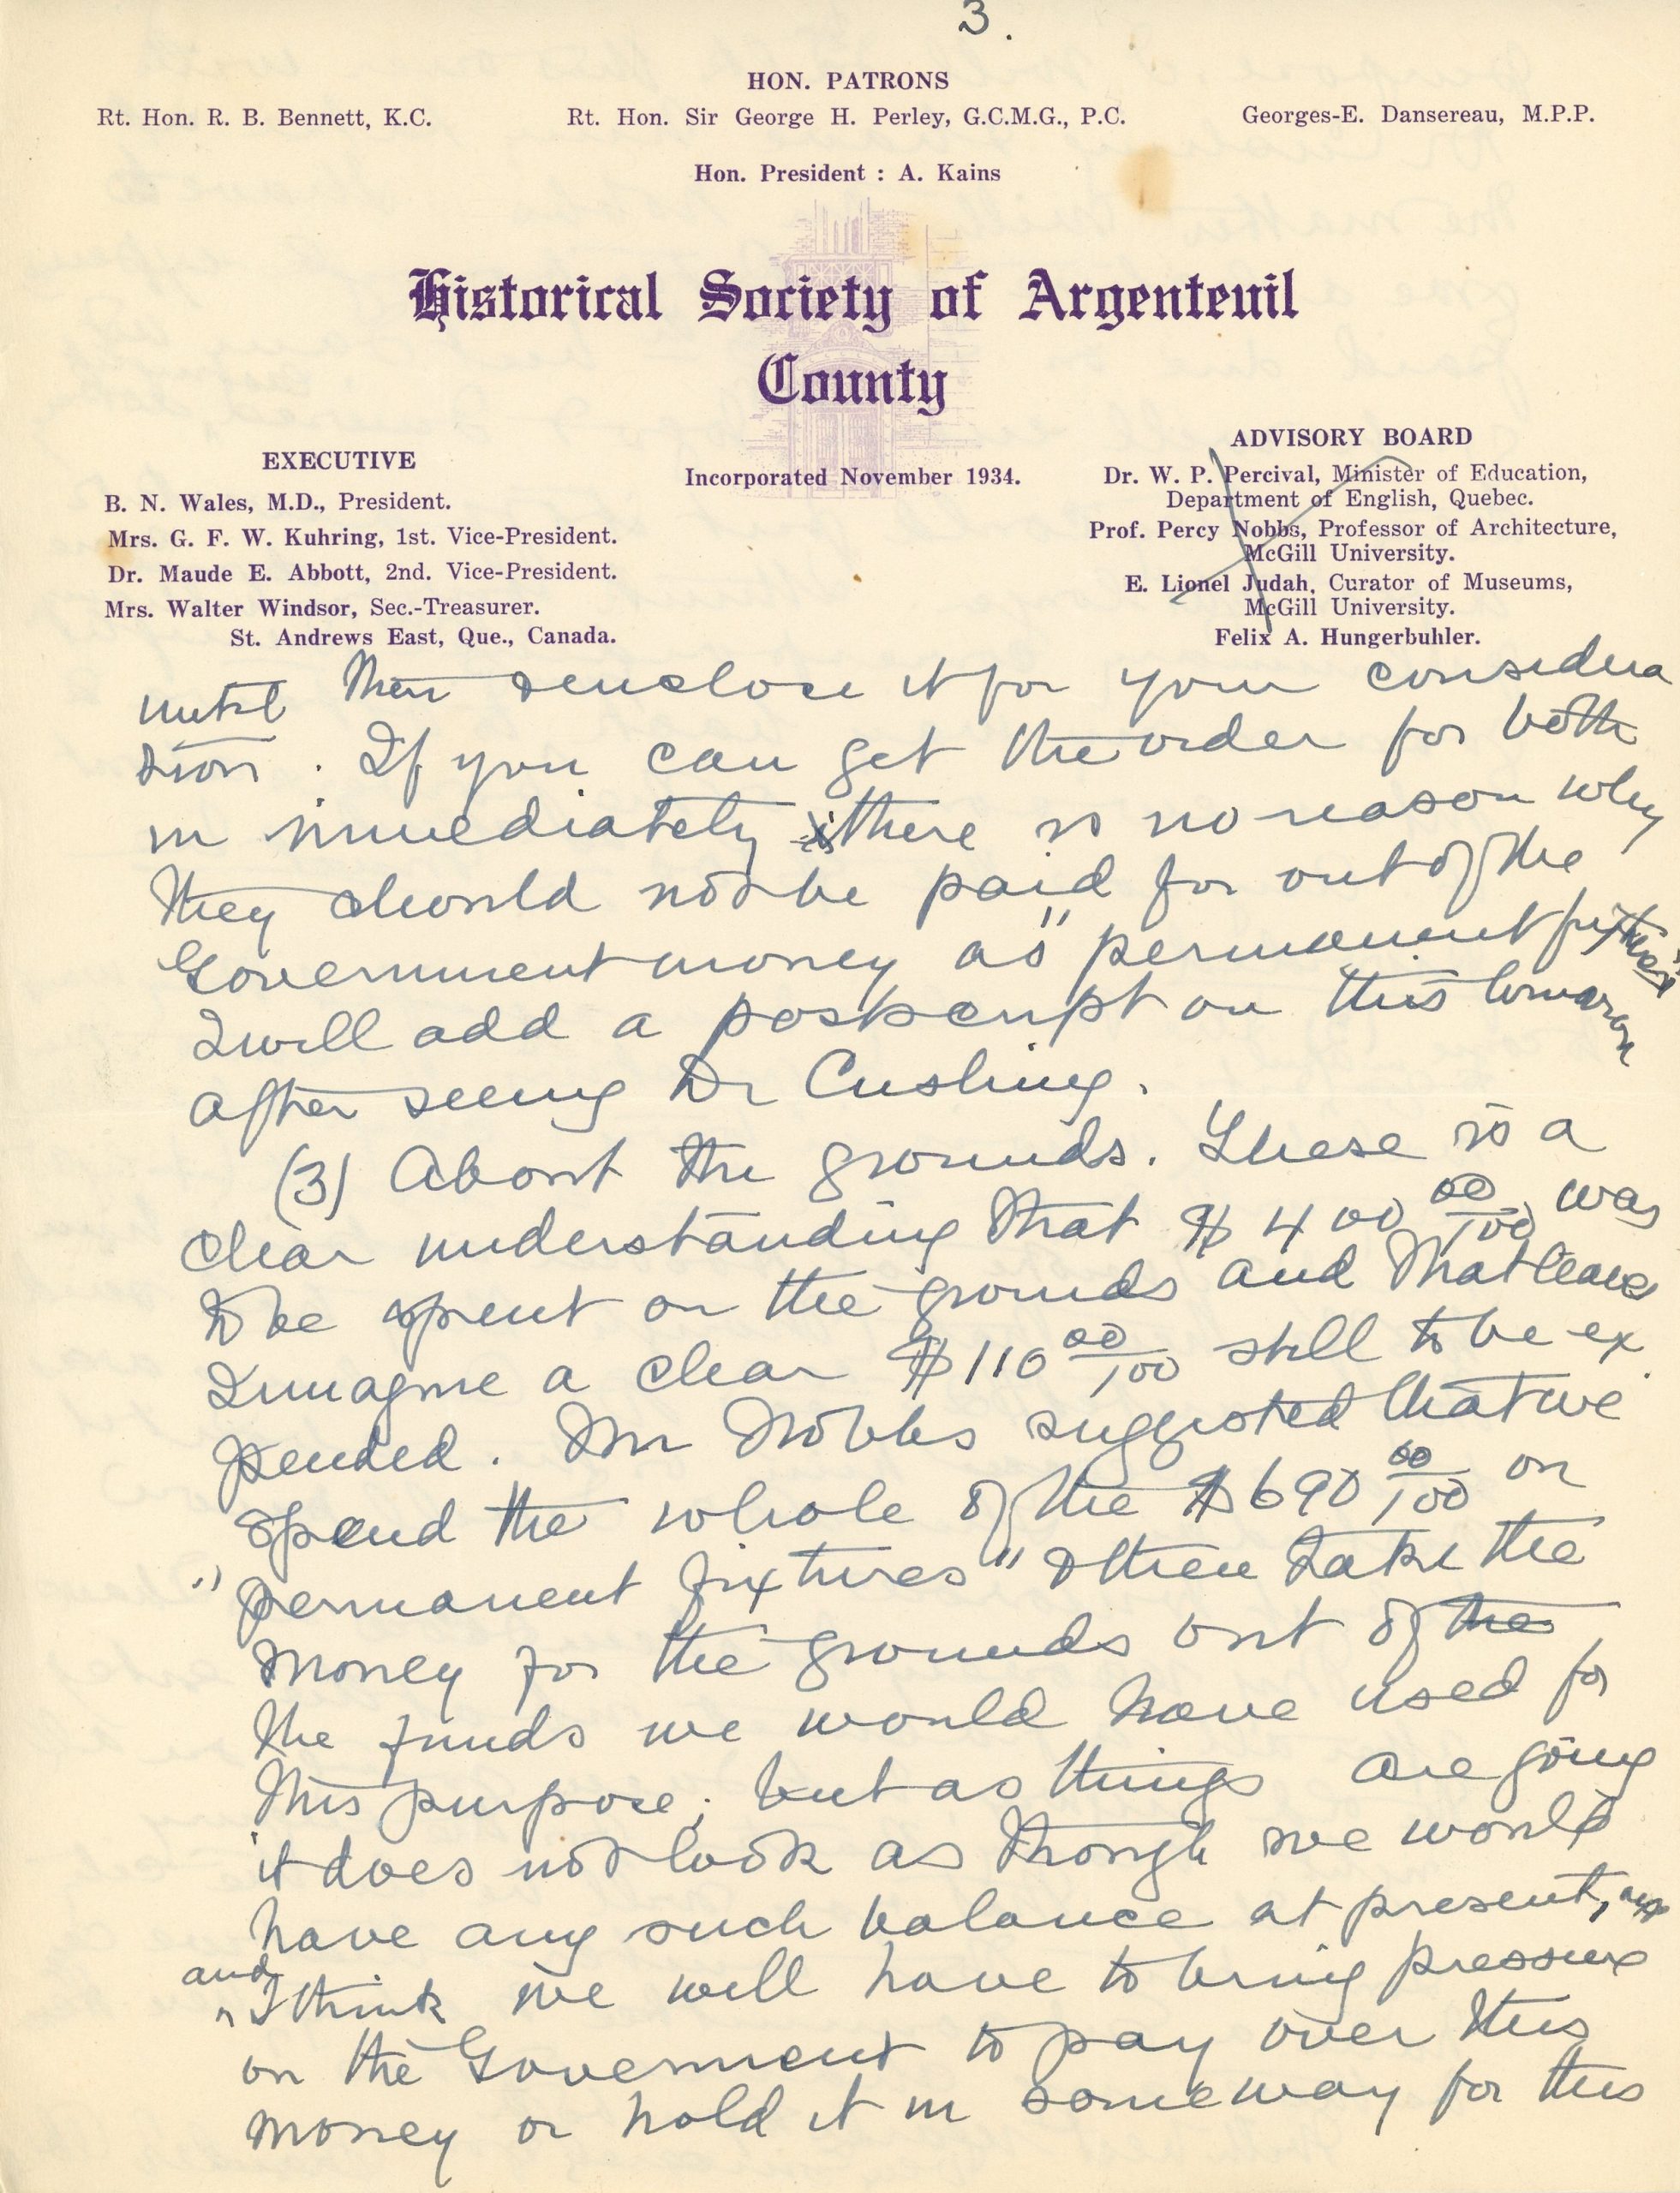 3.
HON. PATRONS
Rt. Hon. R. B. Bennett, K.C. Rt. Hon. Sir George H. Perley, G.C.M.G., P.C. Georges-E. Dansereau, M.P.P.
Hon. President : A. Kains
Historical Society of Argenteuil
County
Incorporated November 1934.
EXECUTIVE
B. N. Wales, M.D., President.
Mrs. G. F. W. Kuhring, 1st. Vice-President.
Dr. Maude E. Abbott, 2nd. Vice-President.
Mrs. Walter Windsor, Sec.-Treasurer.
St. Andrews East, Que., Canada.
ADVISORY BOARD
Dr. W. P. Percival, Minister of Education,
Department of English, Quebec.
Prof. Percy Nobbs, Professor of Architecture,
McGill University.
E. Lionel Judah, Curator of Museums,
McGill University.
Felix A. Hungerbuhler.
until then & enclose it for your considera
tion. If you can get the order for both
in immediately there is no reason why
they should not be paid for out of the
Government money as "permanent fixtures"
I will add a postscript on this tomorrow
after seeing Dr Cushing.
(3) About the grounds. There is a
clear understanding that $400 00/100 was
to be spent on the grounds and that leaves
I imagine a clear $110 00/100 still to be ex
pended. Mr Nobbs suggested that we
spend the whole of the $690 00/100 on
"permanent fixtures" & then take the
money for the grounds out of the
the funds we would have used for
this purpose; but as things are going
it does not look as though we would
have any such balance at present,
and I think we will have to bring pressure
on the Goverment to pay over this
money or hold it in someway for this